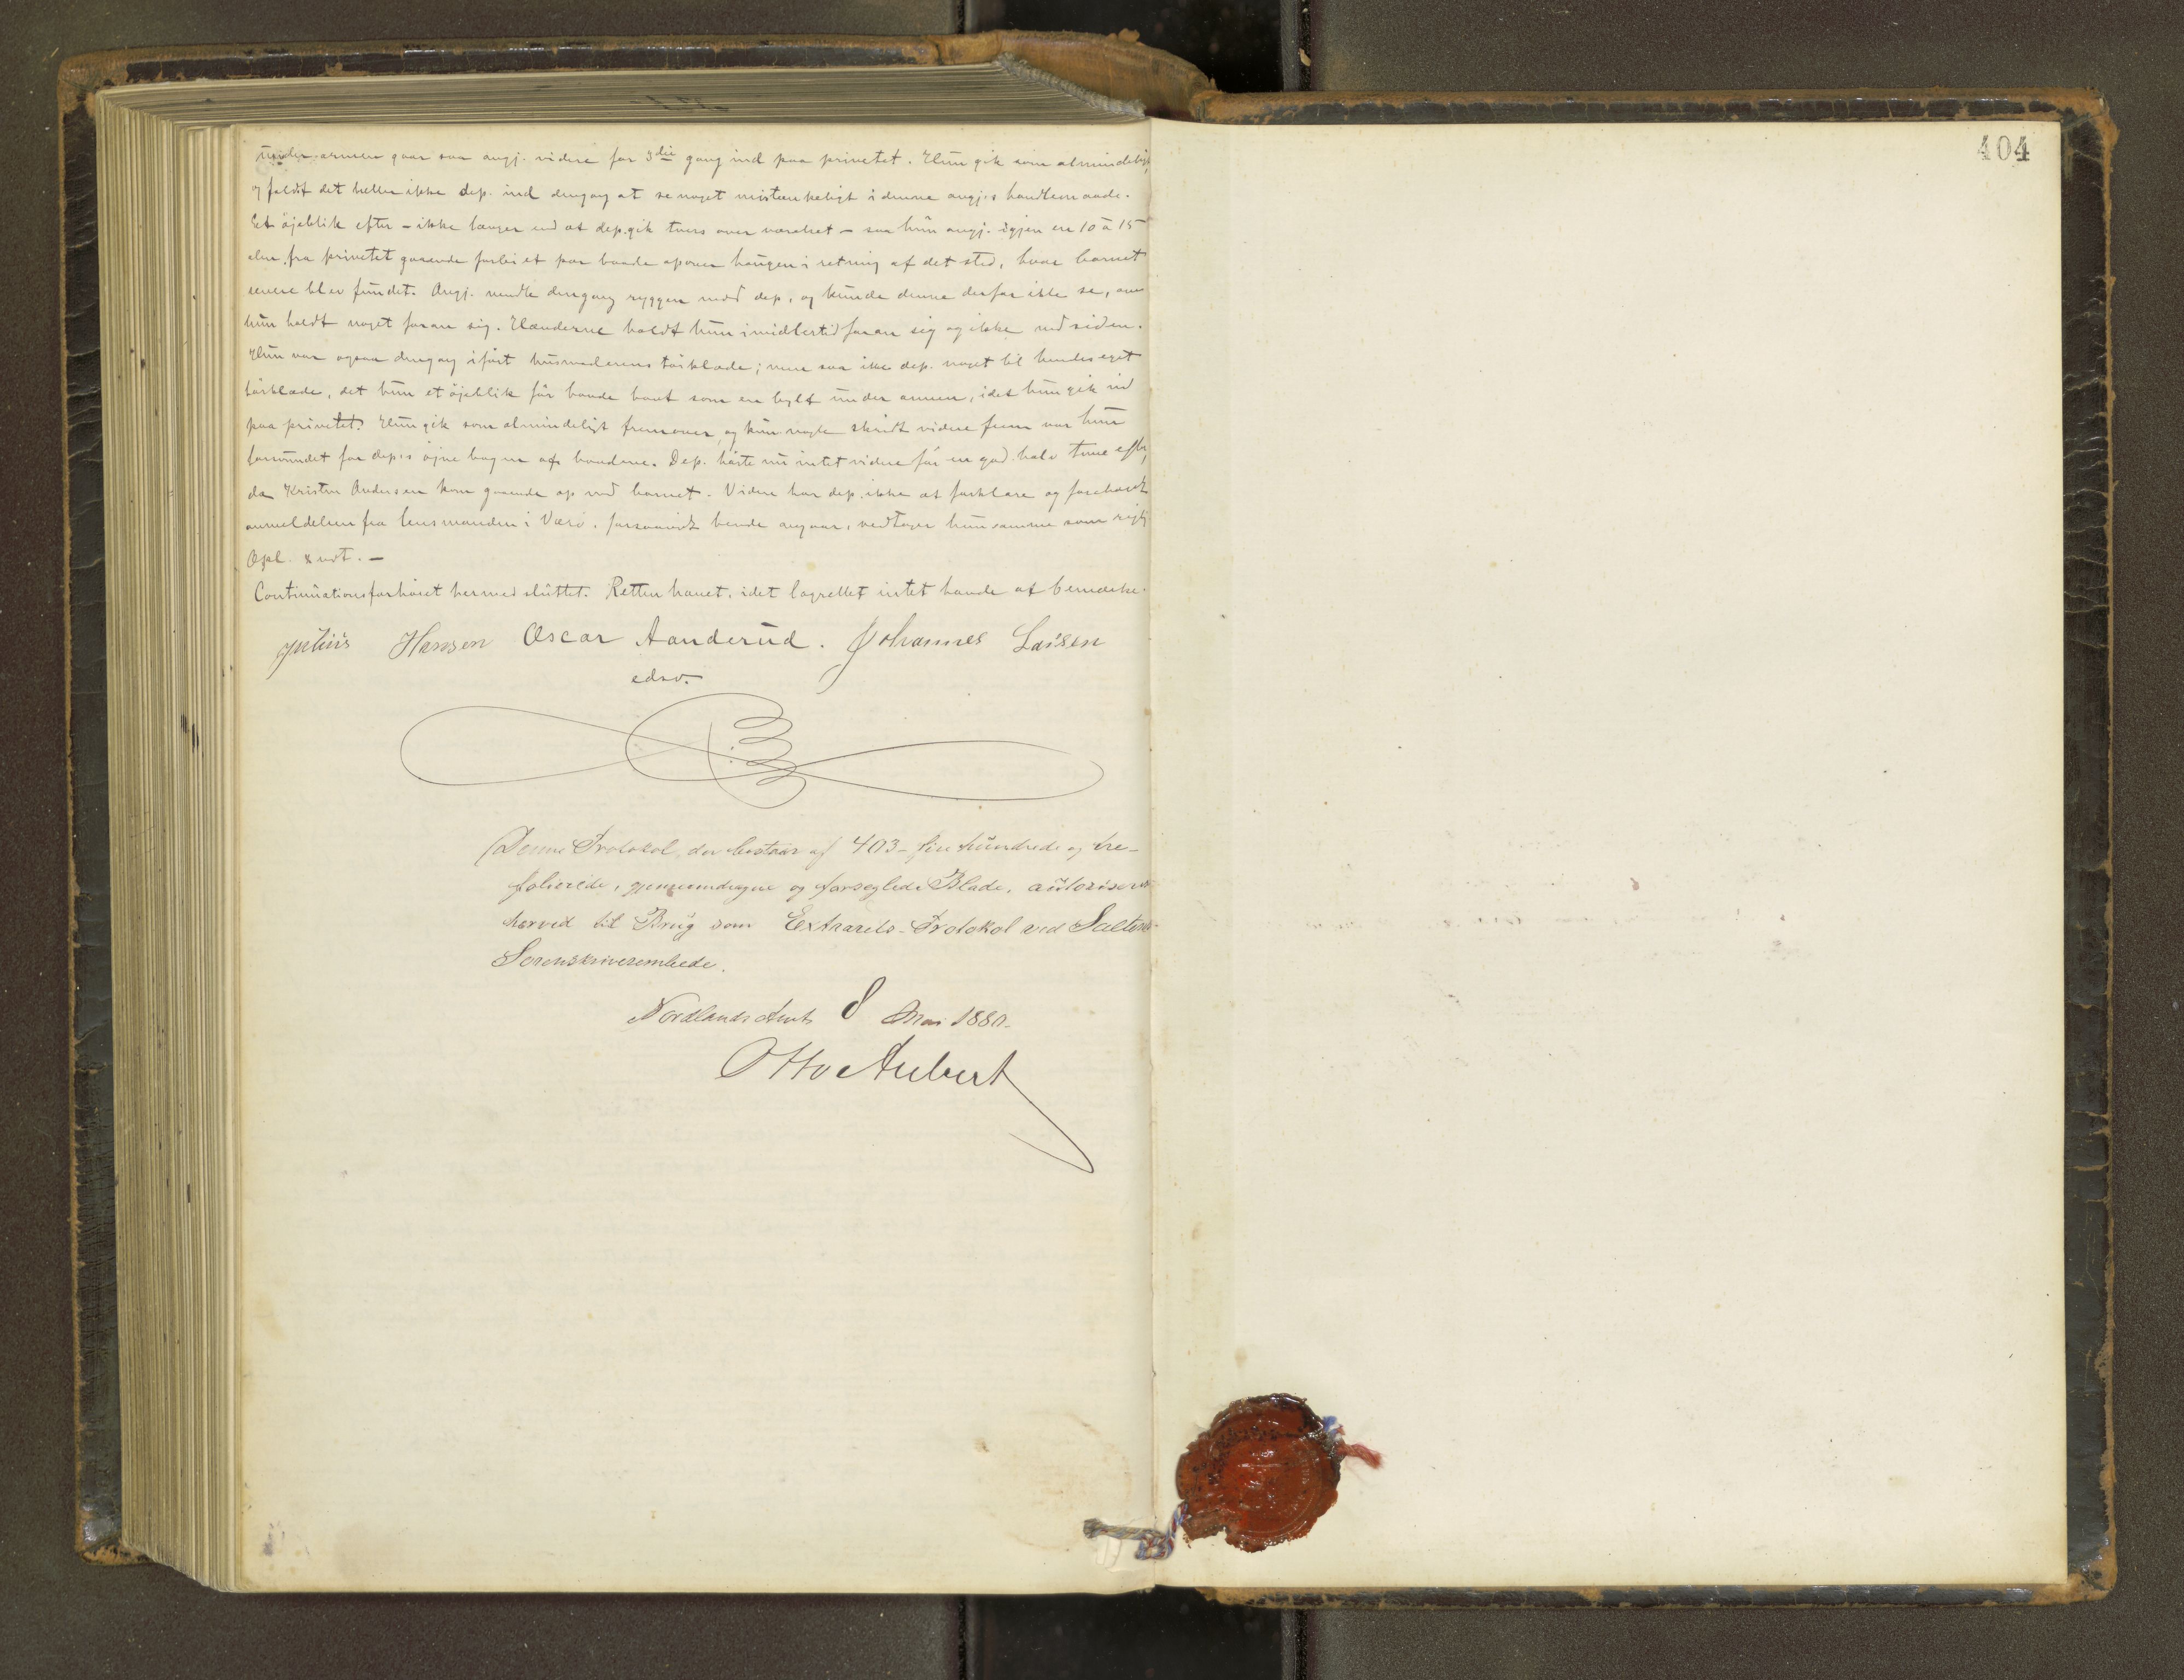 under armen gaar saa angj. videre for 3die gang ind paa privetet. Hun gik som almindeligt,
og faldt det heller ikke dep. ind dengang at se noget mistænkeligt i denne angj.s handlemaade.
Et øjeblik efter – ikke længer end at dep. gik tvers over værelset – saa hun angj. igjen en 10 à 15
alen fra privetet gaaende forbi et par baade opover haugen i retning af det sted, hvor barnet
senere blev fundet. Angj. vendte dengang ryggen mod dep. og kunde denne derfor ikke se, om
hun holdt noget foran sig. Hænderne holdt hun imidlertid foran sig og ikke ned siden.
Hun var ogsaa dengang iført husmoderens tørklæde; men saa ikke dep. noget til hendes eget
tørklæde, det hun et øjeblik før havde havt som en bylt under armen, idet hun gik ind
paa privetet. Hun gik som almindeligt fremover, og kun nogle skridt videre frem var hun
forsvundet for dep.s øjne bagom af baadene. Dep. hørte nu intet videre før en god halv time efter,
da Kristen Andersen kom gaaende op med barnet. Videre har dep. ikke at forklare og foreholdt
anmeldelsen fra lensmanden i Værø, forsaavidt hende angaar, vedtager hun samme som rigtig
Opl. & vedt. –
Continuationsforhøret hermed sluttet. Retten hævet, idet lagrettet intet havde at bemærke.
Julius Hansen Oscar Aanderud. Johannes Larsen
edsv.
Denne Protokol, der bestaar af 403 – fire hundrede og tre –
folierede, gjennemdragne og forseglede Blade, autoriseres
herved til Brug som Extrarets-Protokol ved Saltens
Sorenskriverembede.
Nordlands Amt 8 Mai 1880.
Otto Aubert
404